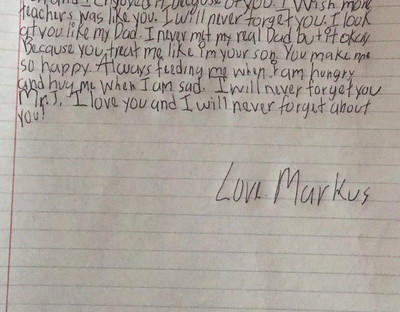 I enjoyed it because of you. I wish more
teachers was like you. I will never forget you. I look
at you like my Dad. I never met my real Dad but it okay
Because you treat me like i'm your son. You make me
so happy. Always feeding me when I am hungry
and hug me when I am sad. I will never forget you
Mr. J. I love you and I will never forget about
you!
Love Markus